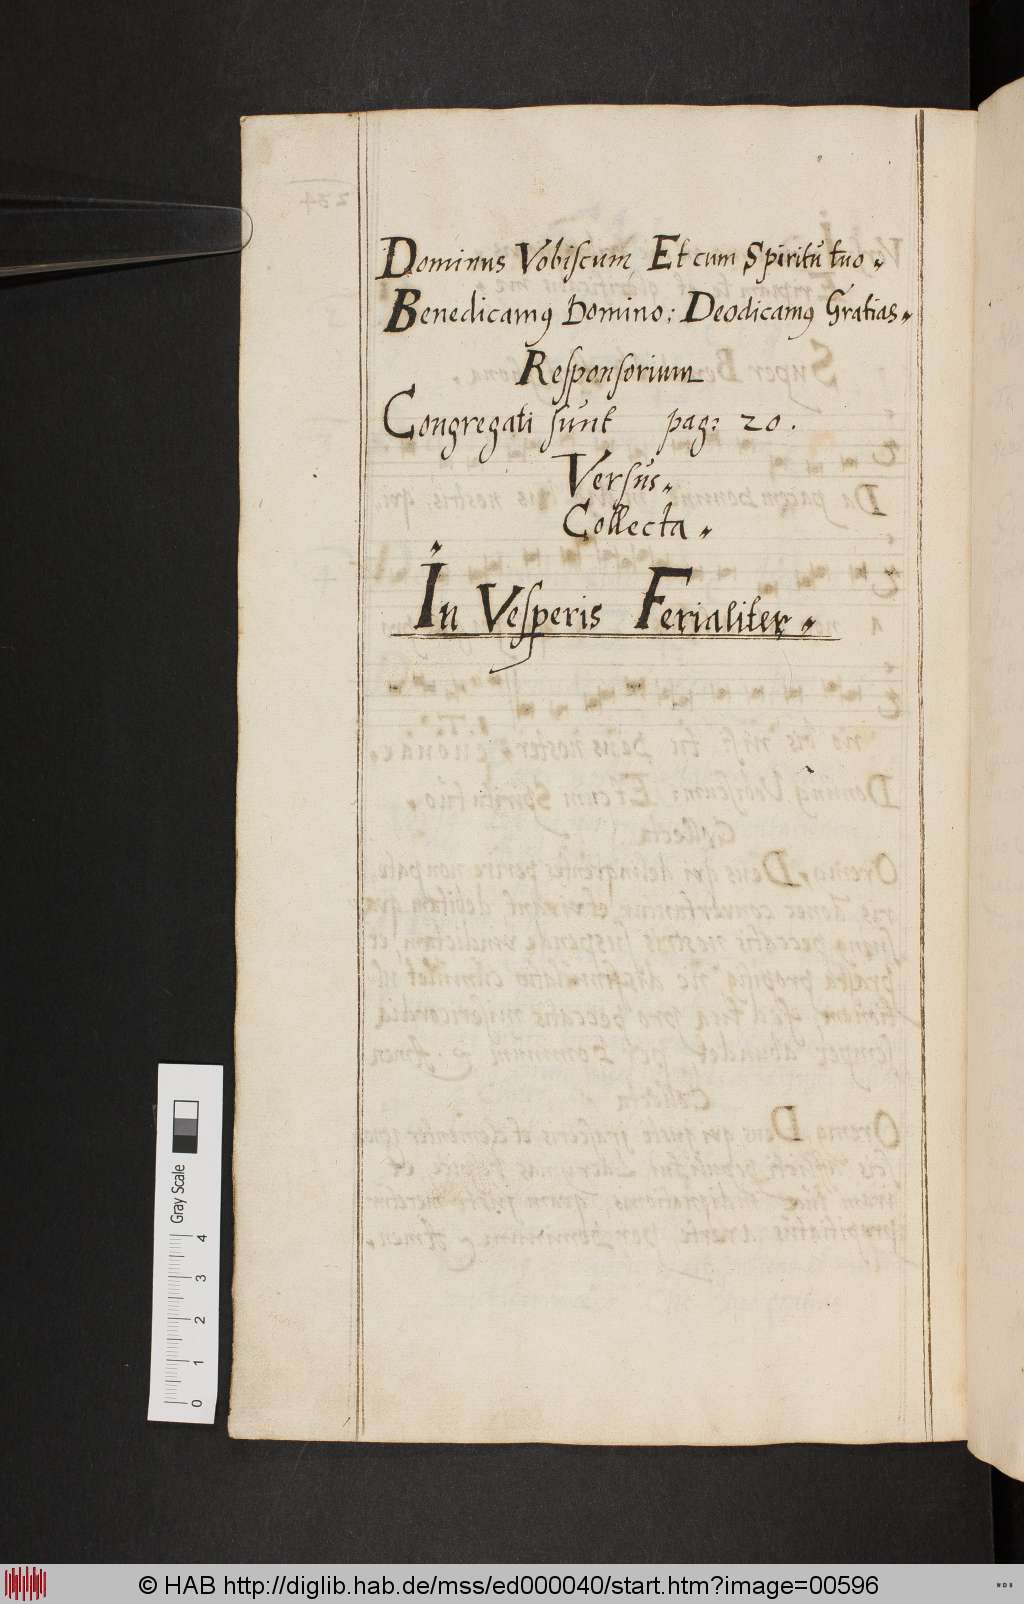 Dominus Vobiscum, Et cum Spiritu tuo
Benedicamꝰ Domino: Deo dicamꝰ Gratias
Responsorium
Congregati sunt pag: 20.
Versus
Collecta
In Vesperis Ferialiter
Gray Scale
0 1 2 3 4
© HAB http://diglib.hab.de/mss/ed000040/start.htm?image=00596